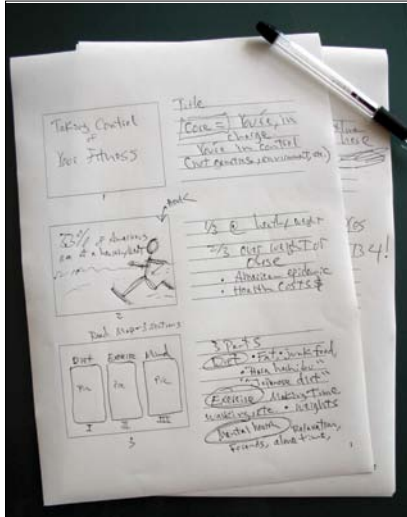 Title
Taking Control
of
Your Fitness
1
Core = You're in
charge
You're in control
(not genetics, environment, etc.)
33% of Americans
are at a healthy
2
1/3 @ healthy weight
2/3 over weight or
obese
• American epidemic
• Health costs $
Road Map or 3 sections
Diet Exercise Mind
Pic Pic Pic
I II III
3
3 Parts
Diet • Fat, junk food,
• "Hara hachi bu"
• "Japanese diet"
Exercise Making time
walking, etc • weights
Mental health Relaxation,
friends, alone time,
Yes
B4!